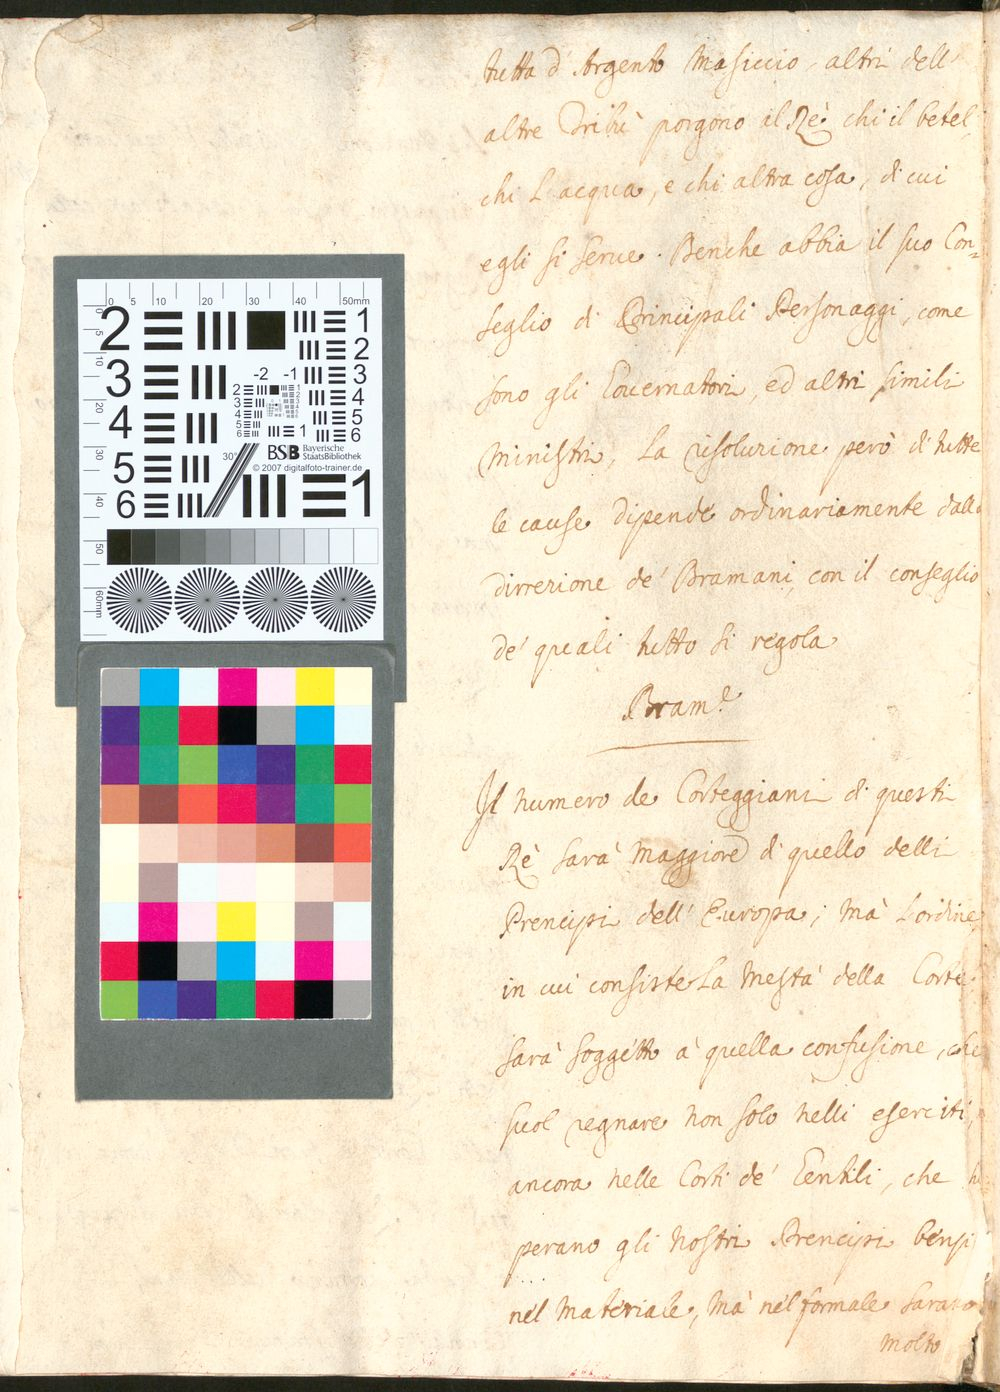 tutta d'Argento Masiccio, altri dell'
altre Tribù porgono al Rè chi il betel,
chi L'acqua, e chi altra cosa, di cui
egli si serue. Benche abbia il suo Con=
seglio di Principali Personaggi, come
sono gli Gouernatori, ed altri simili
Ministri, La risoluzione però di tutte
le cause dipende ordinariamente dalla
dirrezione de' Bramani, con il conseglio
de' quali tutto si regola
Bram.e
Il numero de Corteggiani di questi
Rè sarà Maggiore di quello delli
Prencipi dell'Europa; mà L'ordine
in cui consiste La Mestà della Corte
sarà soggetto à quella confusione, che
suol regnare non solo nelli eserciti,
ancora nelle Corti de' Gentili, che
perano gli Nostri Prencipi bensi
nel Materiale, Mà nel formale saranno
molto
0 5 10 20 30 40 50mm
5 10 20 30 40 50 60mm
2 1
2
3 3
4 4
5
6
5
6
1
-2 -1
2
3
4
5
6
1
30°
BSB Bayerische StaatsBibliothek
© 2007 digitalfoto-trainer.de